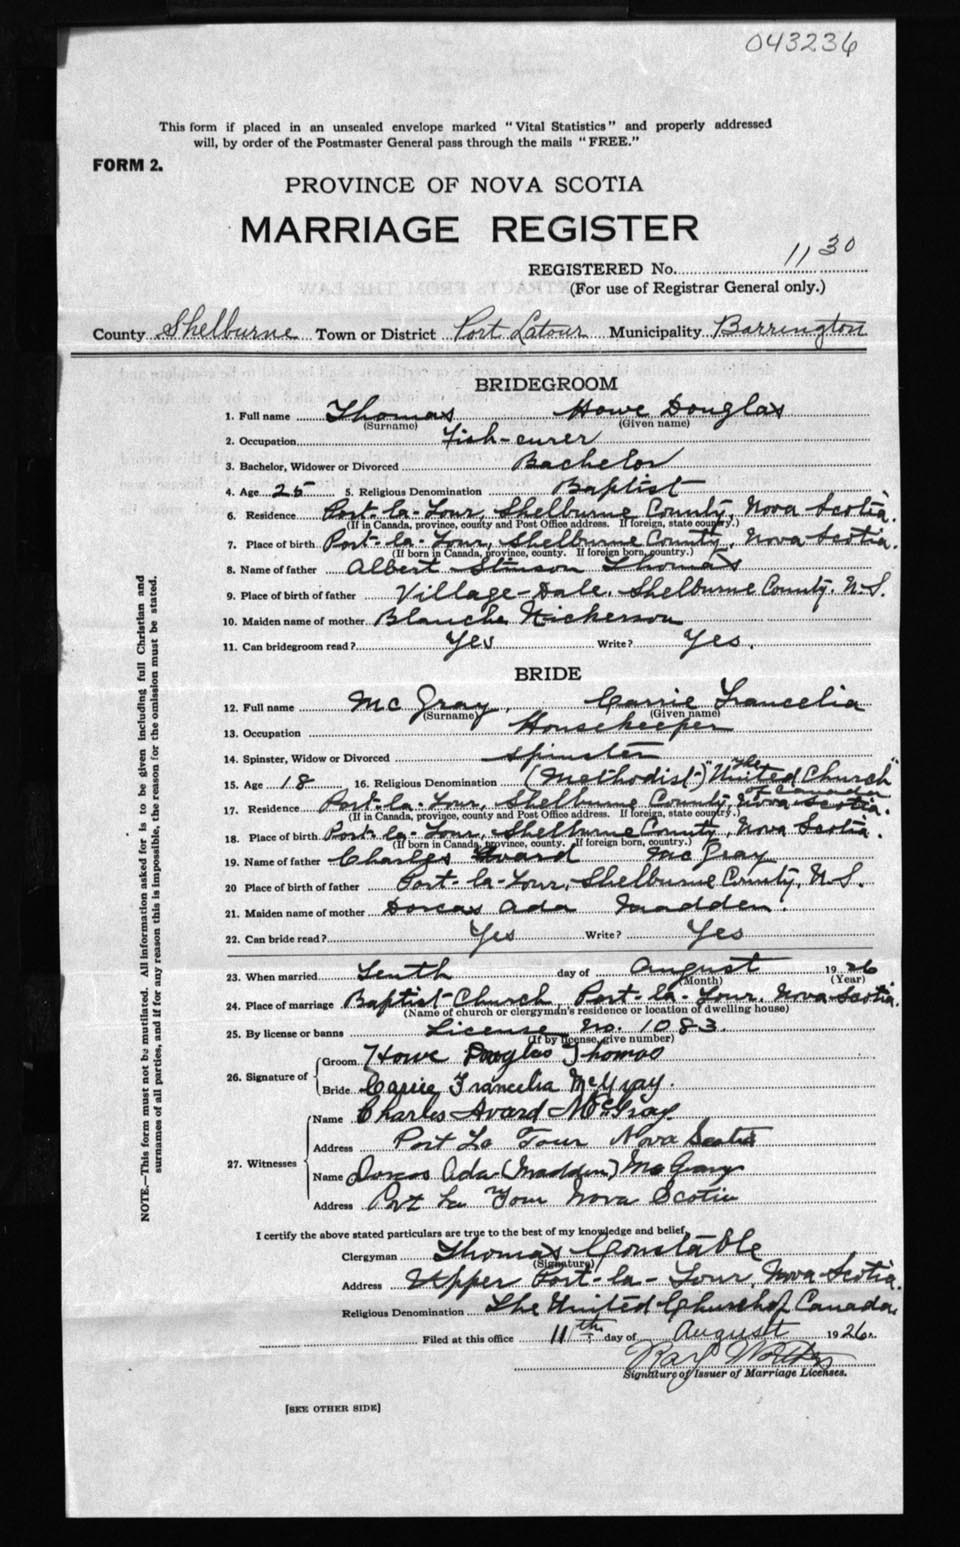 043236
This form if placed in an unsealed envelope marked "Vital Statistics" and properly addressed
will, by order of the Postmaster General pass through the mails "FREE."
FORM 2.
PROVINCE OF NOVA SCOTIA
MARRIAGE REGISTER
REGISTERED No. 1130
(For use of Registrar General only.)
County Shelburne Town or District Port Latour Municipality Barrington
BRIDEGROOM
1. Full name Thomas Howe Douglas
(Surname) (Given name)
2. Occupation Fish-curer
3. Bachelor, Widower or Divorced Bachelor
4. Age 25 5. Religious Denomination Baptist
6. Residence Port-la-Tour, Shelburne County, Nova Scotia.
(If in Canada, province, county and Post Office address. If foreign, state country.)
7. Place of birth Port-la-Tour, Shelburne County, Nova Scotia.
(If born in Canada, province, county. If foreign born, country.)
8. Name of father Albert Stinson Thomas
9. Place of birth of father Village-Dale, Shelburne County, N.S.
10. Maiden name of mother Blanche Nickerson
11. Can bridegroom read? Yes Write? Yes.
BRIDE
12. Full name McGray, Carrie Francelia
(Surname) (Given name)
13. Occupation Housekeeper
14. Spinster, Widow or Divorced Spinster
15. Age 18 16. Religious Denomination (Methodist) "The United Church
of Canada"
17. Residence Port-la-Tour, Shelburne County, Nova Scotia.
(If in Canada, province, county and Post Office address. If foreign, state country.)
18. Place of birth Port-la-Tour, Shelburne County, Nova Scotia.
(If born in Canada, province, county. If foreign born, country.)
19. Name of father Charles Avard McGray
20 Place of birth of father Port-la-Tour, Shelburne County, N.S.
21. Maiden name of mother Dorcas Ada Madden.
22. Can bride read? Yes Write? Yes
23. When married Tenth day of August 1926
(Month) (Year)
24. Place of marriage Baptist Church, Port-la-Tour, Nova Scotia.
(Name of church or clergyman's residence or location of dwelling house)
25. By license or banns License No. 1083
(If by license, give number)
26. Signature of Groom Howe Douglas Thomas
Bride Carrie Francelia McGray.
27. Witnesses Name Charles Avard McGray
Address Port La Tour Nova Scotia
Name Dorcas Ada (Madden) McGray
Address Port La Tour Nova Scotia
I certify the above stated particulars are true to the best of my knowledge and belief,
Clergyman Thomas Constable
(Signature)
Address Upper Port-la-Tour, Nova Scotia.
Religious Denomination The United Church of Canada.
Filed at this office 11th day of August 1926.
Signature of Issuer of Marriage Licenses.
[SEE OTHER SIDE]
NOTE.—This form must not be mutilated. All information asked for is to be given including full Christian and
surnames of all parties, and if for any reason this is impossible, the reason for the omission must be stated.